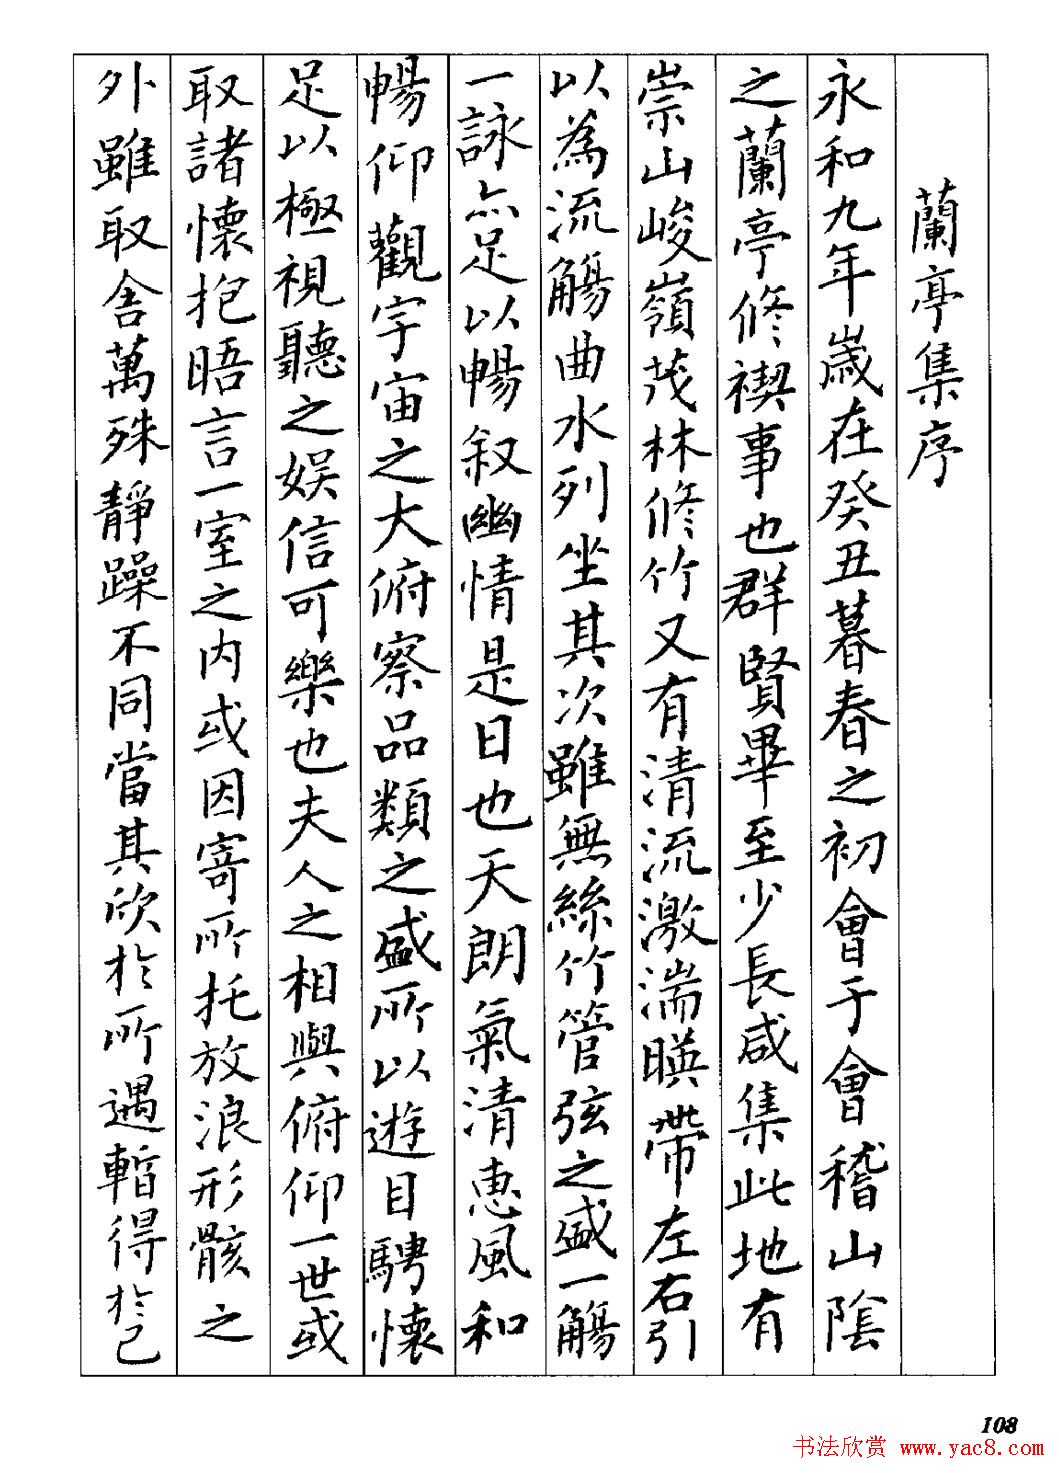 蘭亭集序
永和九年歲在癸丑暮春之初會于會稽山陰
之蘭亭修禊事也群賢畢至少長咸集此地有
崇山峻嶺茂林修竹又有清流激湍暎帶左右引
以為流觴曲水列坐其次雖無絲竹管弦之盛一觴
一詠亦足以暢叙幽情是日也天朗氣清惠風和
暢仰觀宇宙之大俯察品類之盛所以遊目騁懷
足以極視聽之娛信可樂也夫人之相與俯仰一世或
取諸懷抱晤言一室之内或因寄所托放浪形骸之
外雖取舍萬殊靜躁不同當其欣於所遇暫得於己
108
书法欣赏 www.yac8.com